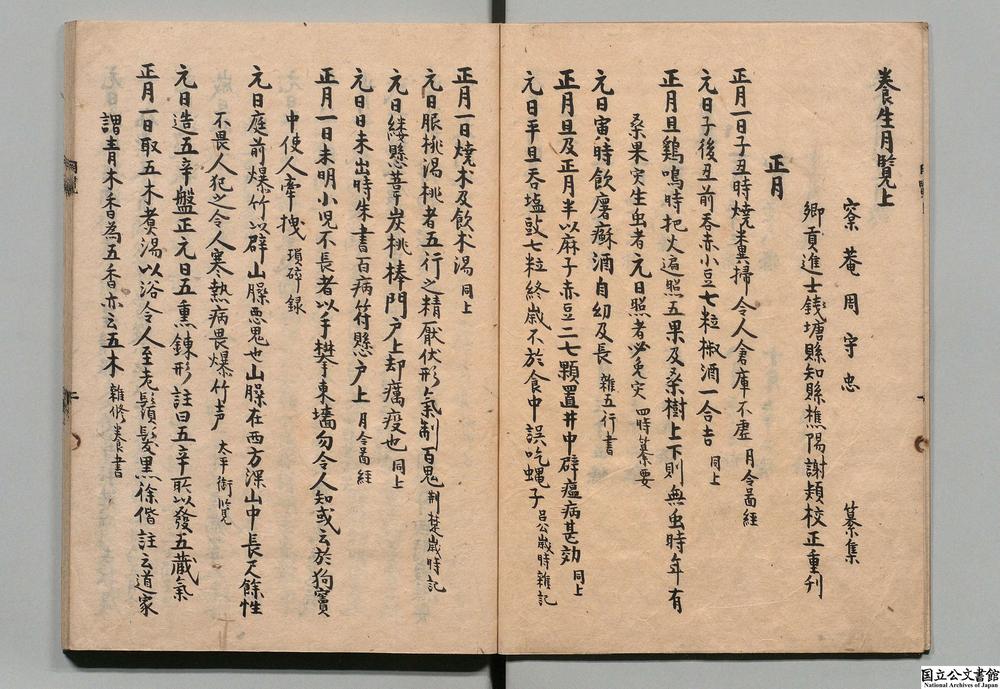 養生月覽上
窾菴周守忠 纂集
鄉貢進士錢塘縣知縣樵陽謝熲校正重刊
正月
正月一日子丑時燒米異掃令人倉庫不虛 月令啚經
元日子後丑前吞赤小豆七粒椒酒一合吉 同上
正月旦鷄鳴時把火遍照五果及桑樹上下則無虫時年有
桑果灾生虫者元日照者必免灾 四時纂要
元日寅時飲屠蘇酒自幼及長 雜五行書
正月旦及正月半以麻子赤豆二七顆置井中辟瘟病甚効 同上
元日平旦吞塩豉七粒終歲不於食中誤吃蝿子 呂公歲時雜記
正月一日燒朮及飲朮湯 同上
元日服桃湯桃者五行之精厭伏邪氣制百鬼 荆楚歲時記
元日縷懸葦炭桃棒門戶上却癘疫也 同上
元日日未出時朱書百病符懸戶上 月令啚經
正月一日未明小児不長者以手攀東墻勿令人知或云於狗竇
中使人牽拽 瑣碎録
元日庭前爆竹以辟山臊悪鬼也山臊在西方深山中長尺餘性
不畏人犯之令人寒熱病畏爆竹声 太平御覽
元日造五辛盤正元日五熏錬形註曰五辛所以發五藏氣
正月一日取五木煮湯以浴令人至老鬚髮黒徐偕註云道家
謂青木香為五香亦云五木 雜修養書
国立公文書館
National Archives of Japan